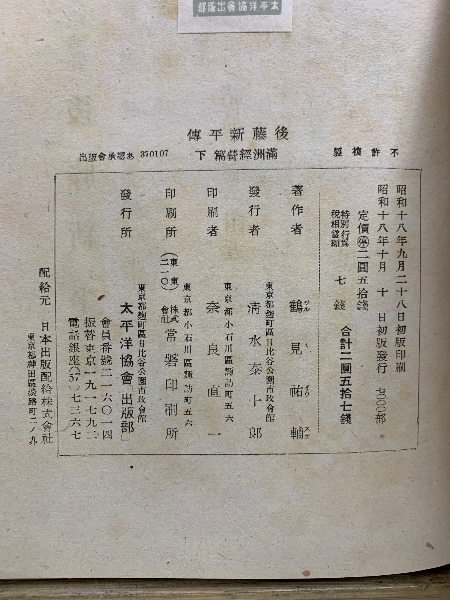 太平洋協會出版部
後藤新平傳
滿洲經營篇 下
不許複製
出版會承認あ370107
昭和十八年九月二十八日初版印刷
昭和十八年十月 十 日初版發行
定價㊞二圓五拾錢
特別行爲稅相當額
七錢
合計二圓五拾七錢
著作者 鶴見祐輔
東京都麴町區日比谷公園市政會館
發行者 淸水泰十郞
東京都小石川區諏訪町五六
印刷者 奈良直一
東京都小石川區諏訪町五六
印刷所 (東東二一〇) 株式會社 常磐印刷所
東京都麴町區日比谷公園市政會館
發行所 太平洋協會出版部
會員番號二一六〇一四
振替東京一九一七九二
電話銀座(57)七三六七
配給元 日本出版配給株式會社
東京都神田區淡路町二ノ九